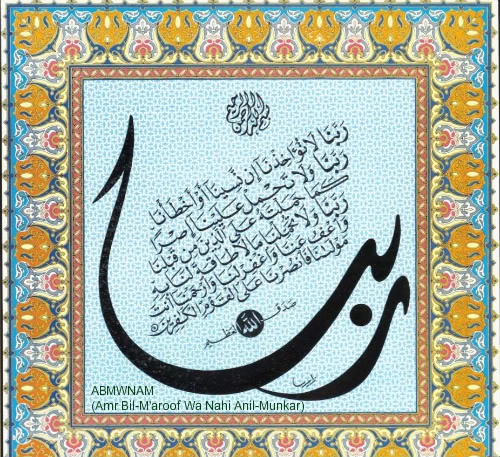 بسم الله الرحمن الرحيم
ربنا
رَبَّنَا لَا تُؤَاخِذْنَا إِنْ نَسِينَا أَوْ أَخْطَأْنَا
رَبَّنَا وَلَا تَحْمِلْ عَلَيْنَا إِصْرًا
كَمَا حَمَلْتَهُ عَلَى الَّذِينَ مِنْ قَبْلِنَا
رَبَّنَا وَلَا تُحَمِّلْنَا مَا لَا طَاقَةَ لَنَا بِهِ
وَاعْفُ عَنَّا وَاغْفِرْ لَنَا وَارْحَمْنَا أَنْتَ
مَوْلَانَا فَانْصُرْنَا عَلَى الْقَوْمِ الْكَافِرِينَ
صدق الله العظيم
ABMWNAM
(Amr Bil-M'aroof Wa Nahi Anil-Munkar)